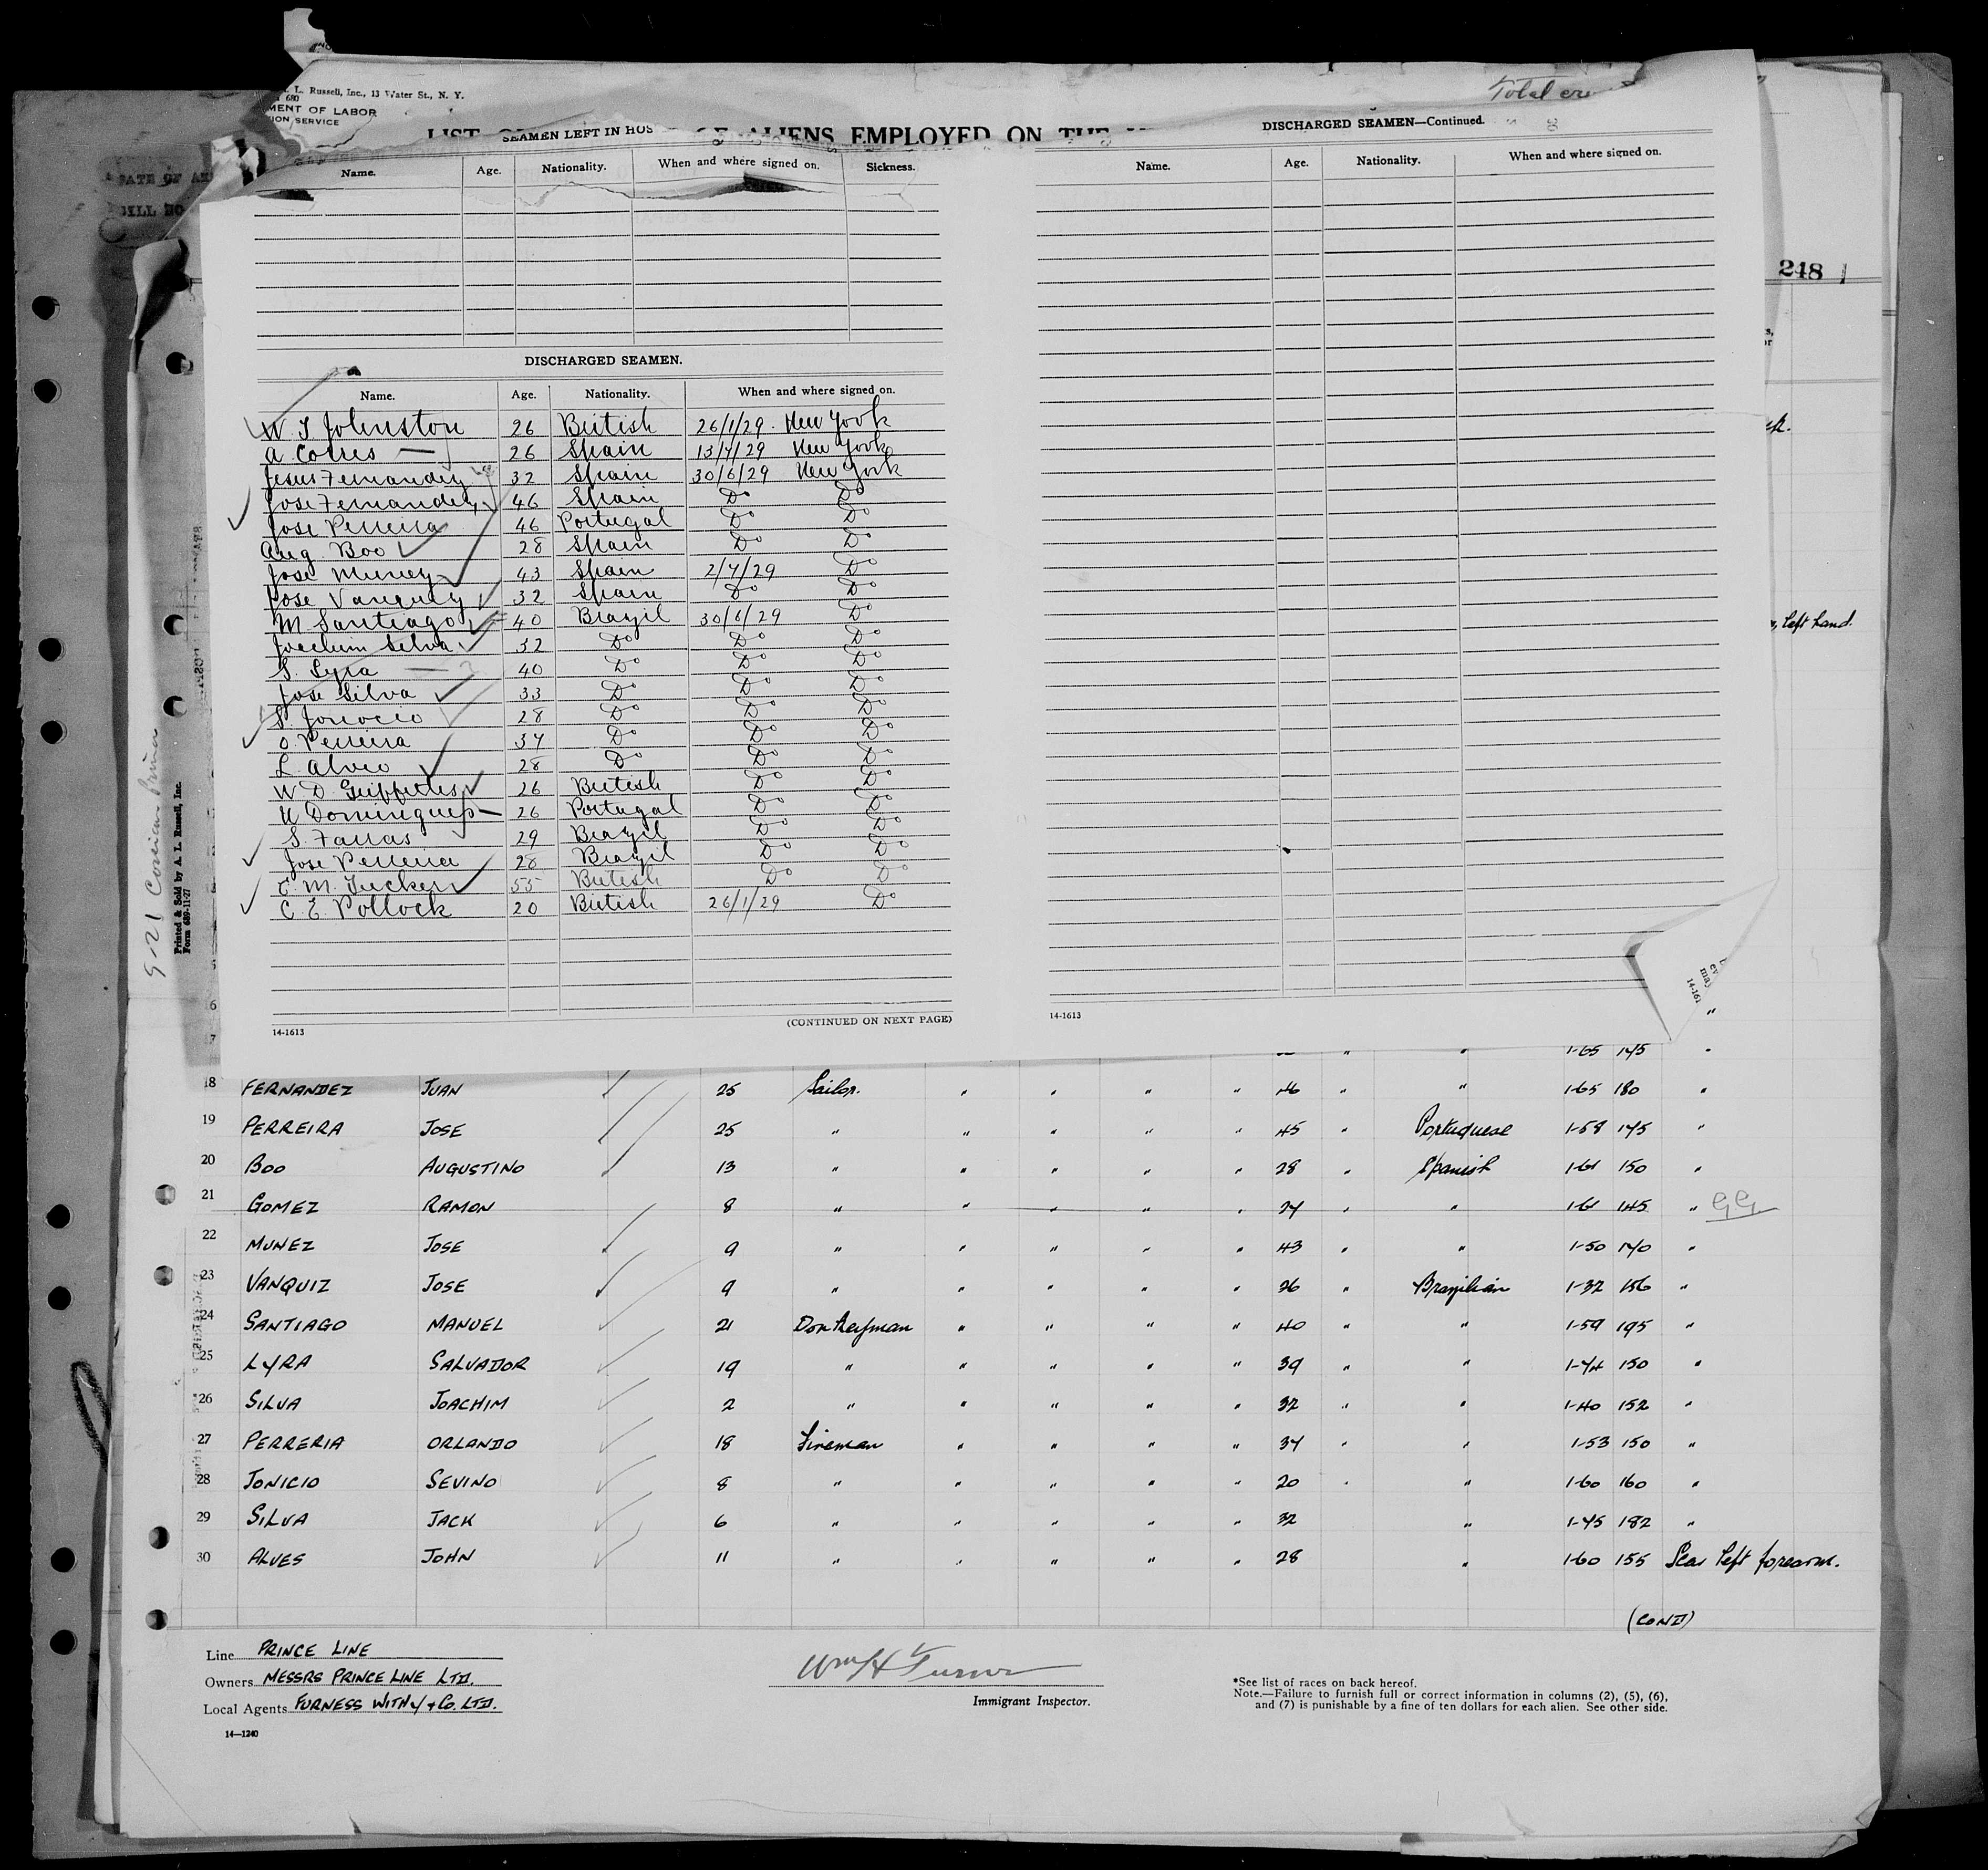 L. Russell, Inc., 13 Water St., N. Y.
680
MENT OF LABOR
ION SERVICE
Total
LIST ALIENS EMPLOYED ON THE
SEAMEN LEFT IN HOS
Name. Age. Nationality. When and where signed on. Sickness.
DISCHARGED SEAMEN.
Name. Age. Nationality. When and where signed on.
Johnston 26 British 26/1/29. New York
A. 26 Spain 13/4/29 New York
Jesus Fernandez 32 Spain 30/6/29 New York
Jose Fernandez 46 Spain Do Do
Jose Perreira 46 Portugal Do Do
Aug. Boo 28 Spain Do Do
Jose Munez 43 Spain 2/7/29 Do
Jose Vanquez 32 Spain Do Do
M Santiago 40 Brazil 30/6/29 Do
Joachim Silva 32 Do Do Do
S. Lyra 40 Do Do Do
Jose Silva 33 Do Do Do
S. 28 Do Do Do
O. Perreira 34 Do Do Do
L. 28 Do Do Do
W. D. Griffiths 26 British Do Do
Domingues 26 Portugal Do Do
S. Farras 29 Brazil Do Do
Jose Perreira 28 Brazil Do Do
E. M. Tucker 55 British Do Do
C. E. Pollock 20 British 26/1/29 Do
14-1613
(CONTINUED ON NEXT PAGE)
DISCHARGED SEAMEN—Continued.
Name. Age. Nationality. When and where signed on.
14-1613
248
left hand.
Printed & Sold by A. L. Russell, Inc.
Form 689-11-27
6
7
1-65 145
18 FERNANDEZ JUAN 25 Sailor. " " " " 46 " " 1-65 180 "
19 PERREIRA JOSE 25 " " " " " 45 " Portuguese 1-58 145 "
20 BOO AUGUSTINO 13 " " " " " 28 " Spanish 1-61 150 "
21 GOMEZ RAMON 8 " " " " " 24 " " 1-61 145 "
22 MUNEZ JOSE 9 " " " " " 43 " " 1-50 140 "
23 VANQUIZ JOSE 9 " " " " " 26 " Brazilian 1-32 156 "
24 SANTIAGO MANUEL 21 Donkeyman " " " " 40 " " 1-59 195 "
25 LYRA SALVADOR 19 " " " " " 39 " " 1-74 150 "
26 SILVA JOACHIM 2 " " " " " 32 " " 1-40 152 "
27 PERRERIA ORLANDO 18 Fireman " " " " 34 " " 1-53 150 "
28 JONICIO SEVINO 8 " " " " " 20 " " 1-60 160 "
29 SILVA JACK 6 " " " " " 32 " 1-45 182 "
30 ALVES JOHN 11 " " " " " 28 " 1-60 155 Scar left forearm.
(CONTD)
Line PRINCE LINE
Owners MESSRS PRINCE LINE LTD.
Local Agents FURNESS WITHY & CO. LTD.
14—1240
Wm H Turner
Immigrant Inspector.
*See list of races on back hereof.
Note.—Failure to furnish full or correct information in columns (2), (5), (6),
and (7) is punishable by a fine of ten dollars for each alien. See other side.